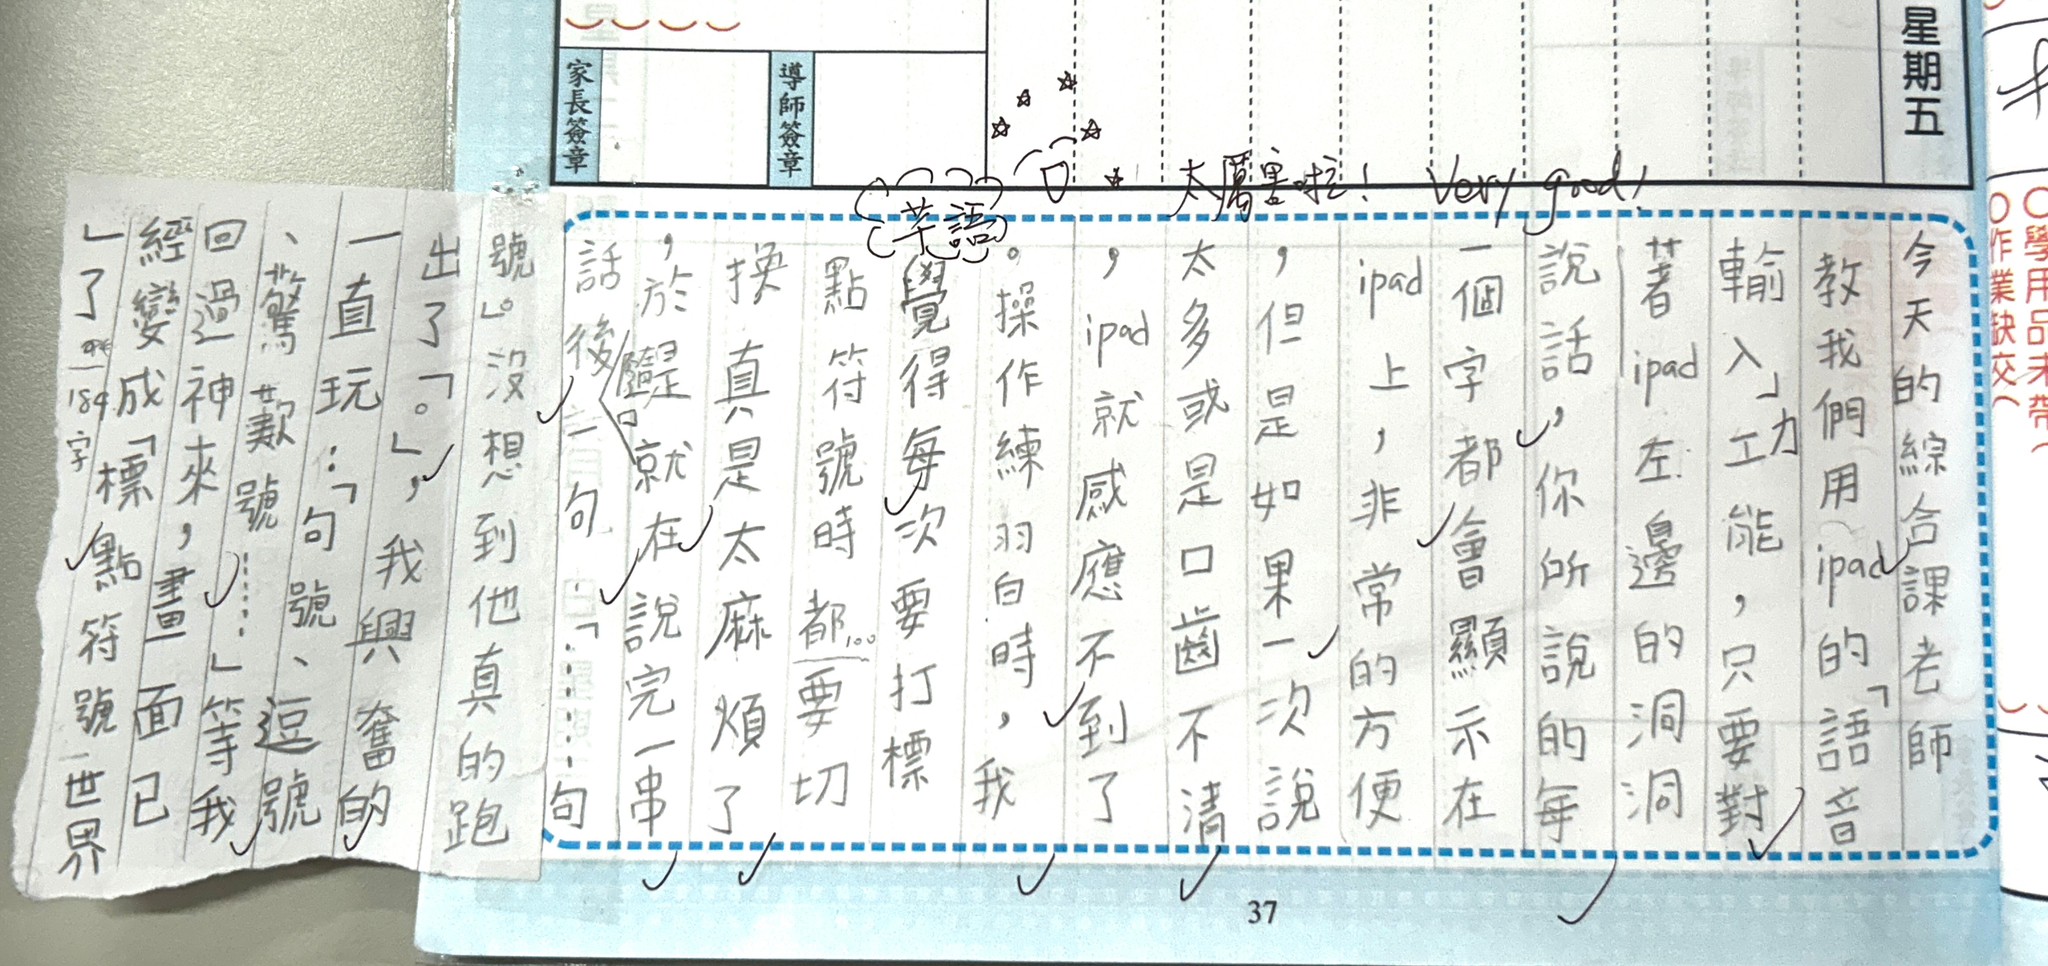 星期五
導師簽章
家長簽章
太厲害啦！ Very good！
芊語
今天的綜合課老師
教我們用ipad的「語音
輸入」工力能，只要對
著ipad左邊的洞洞
說話，你所說的每
一個字都會顯示在
ipad上，非常的方便
，但是如果一次說
太多或是口齒不清
，ipad就感應不到了
。操作練習時，我
覺得每次要打標
點符號時都要切
換真是太麻煩了
，於是就在說完一串
話後一句「……句
號」。沒想到他真的跑
出了「。」，我興奮的
一直玩：「句號、逗號
、驚歎號……」等我
回過神來，畫面已
經變成「標點符號世界
」了
184字
37
○學用品未帶(
○作業缺交(